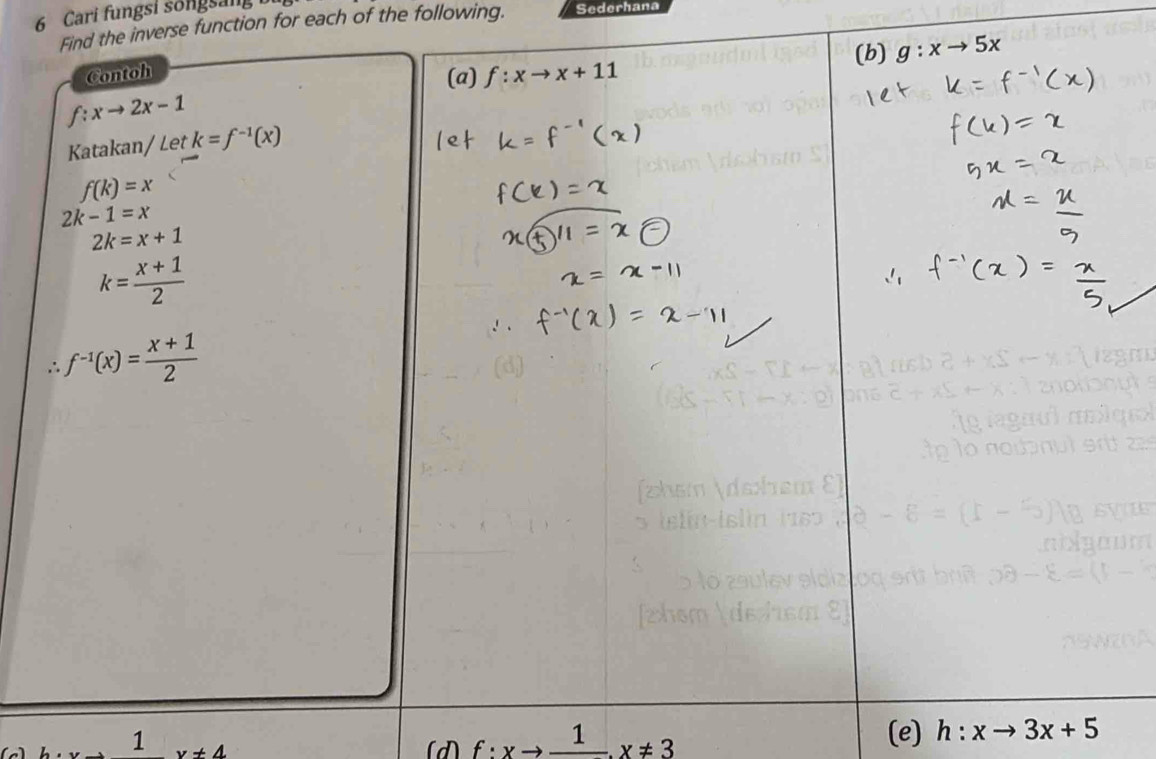 6 Cari fungsi songsang
Find the inverse function for each of the following.
Sederhana
Contoh
f : x → 2x − 1
Katakan/ Let k = f⁻¹(x)
f(k) = x
2k − 1 = x
2k = x + 1
k = \frac{x + 1}{2}
∴ f⁻¹(x) = \frac{x + 1}{2}
(a) f : x → x + 11
let k = f⁻¹(x)
f(k) = x
x + 11 = x −
x = x − 11
∴ f⁻¹(x) = x − 11 ✓
(b) g : x → 5x
let k = f⁻¹(x)
f(k) = x
5x = x
x = \frac{x}{5}
∴ f⁻¹(x) = \frac{x}{5} ✓
(c) h : x → 1 x ≠ 4
(d) f : x → 1 , x ≠ 3
(e) h : x → 3x + 5